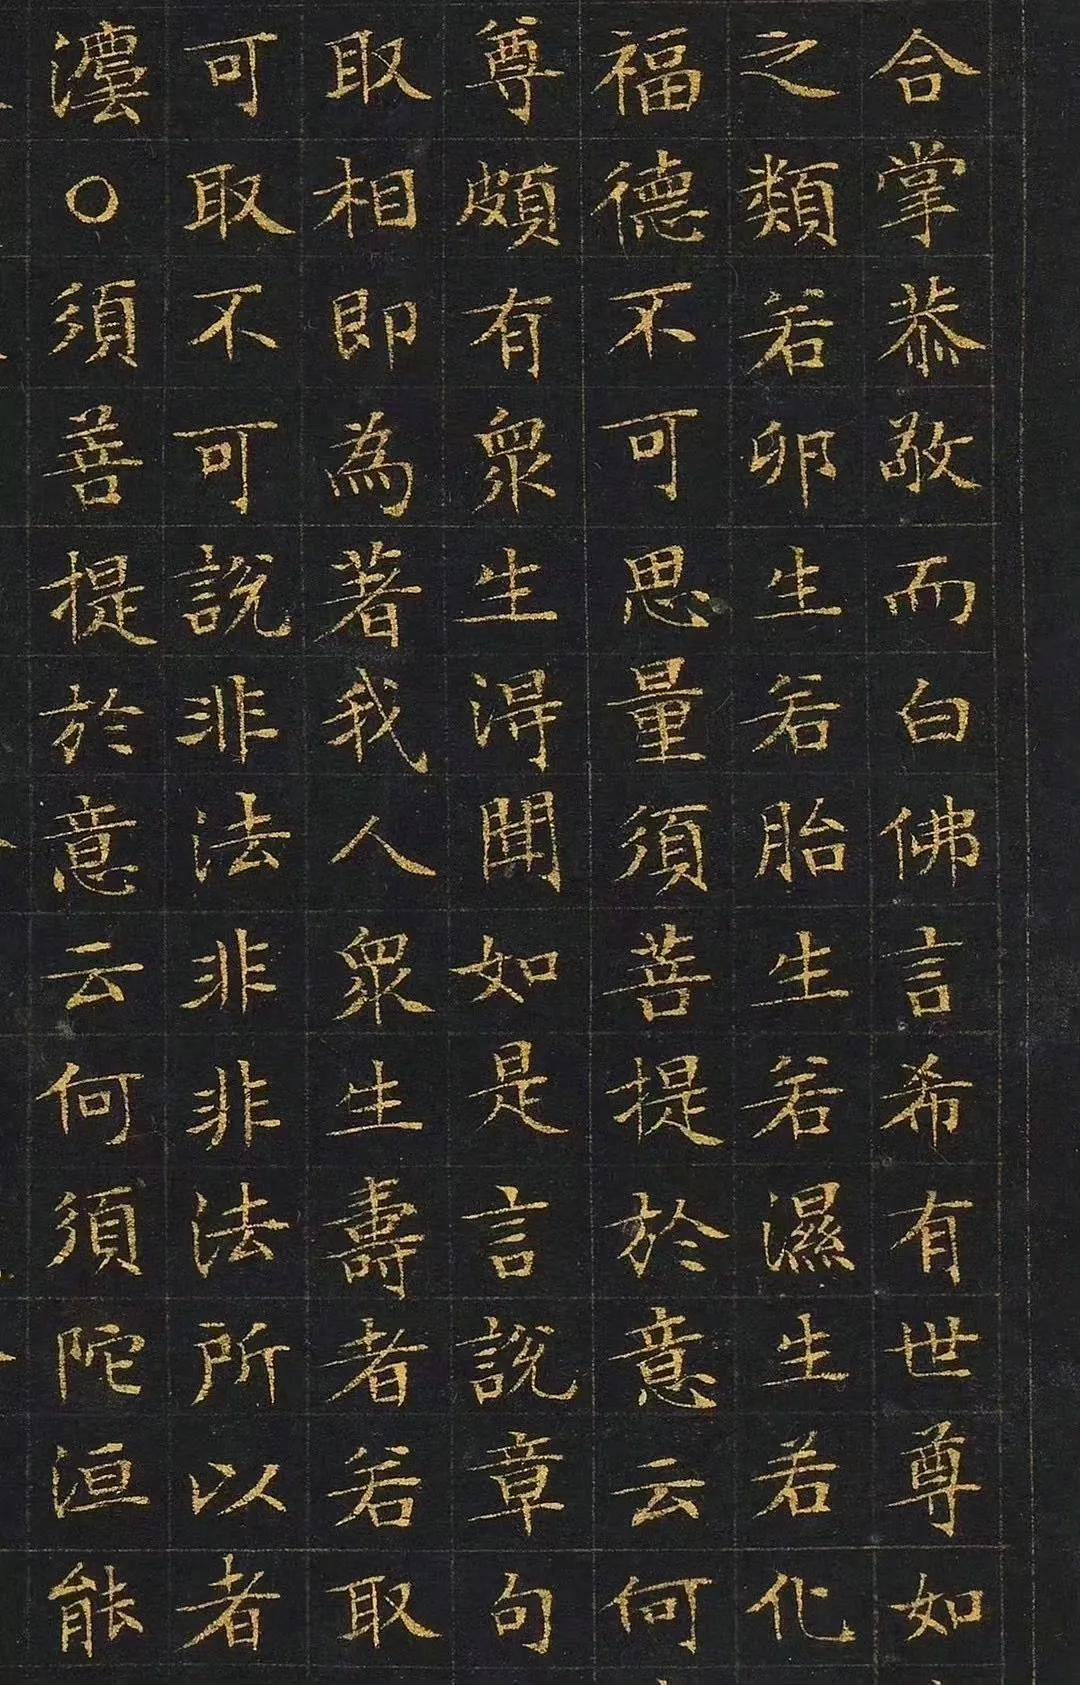 合掌恭敬而白佛言希有世尊如
之類若卵生若胎生若濕生若化
福德不可思量須菩提於意云何
尊頗有眾生得聞如是言說章句
取相即為著我人眾生壽者若取
可取不可說非法非非法所以者
灋〇須菩提於意云何須陀洹能